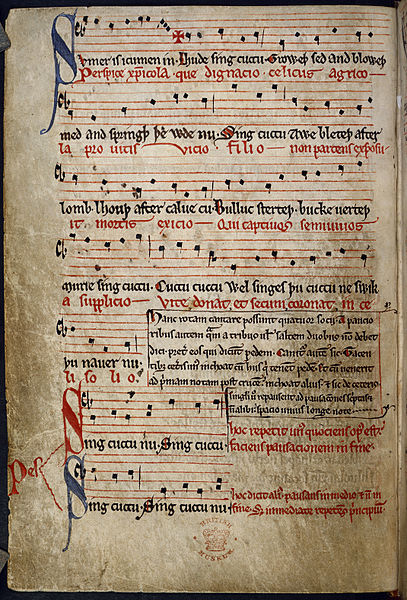 Sumer is icumen in. Lhude sing cuccu. Groweþ sed and bloweþ
Perspice xp̄icola que dignacio celicus agrico
med and springþ þe wde nu. Sing cuccu Awe bleteþ after
la pro uitis vicio filio non parcens exposu
lomb. lhouþ after calue cu. Bulluc sterteþ. bucke uerteþ
it mortis exicio Qui captiuos semiuiuos
murie sing cuccu. Cuccu cuccu Wel singes þu cuccu ne swik
a supplicio Vite donat et secum coronat in ce
Hanc rotam cantare possunt quatuor socii. A paucio
ribus autem quam a tribus uel saltem duobus non debet
þu nauer nu.
dici. preter eos qui dicunt pedem. Canitur autem sic. Tacen
li solio.
tibus ceteris unus inchoat cum hiis qui tenent pedem. Et cum uenerit
ad primam notam post crucem. inchoat alius. et sic de ceteris
singuli uero repausent ad pausaciones scriptas
non alibi. spacio unius longe note.
hoc repetit unus quociens opus est.
Sing cuccu nu. Sing cuccu.
faciens pausacionem in fine.
Pes
hoc dicit alius. pausans in medio. et non in
Sing cuccu. Sing cuccu nu.
fine. Set immediate repetens principium.
BRITISH
MUSEUM